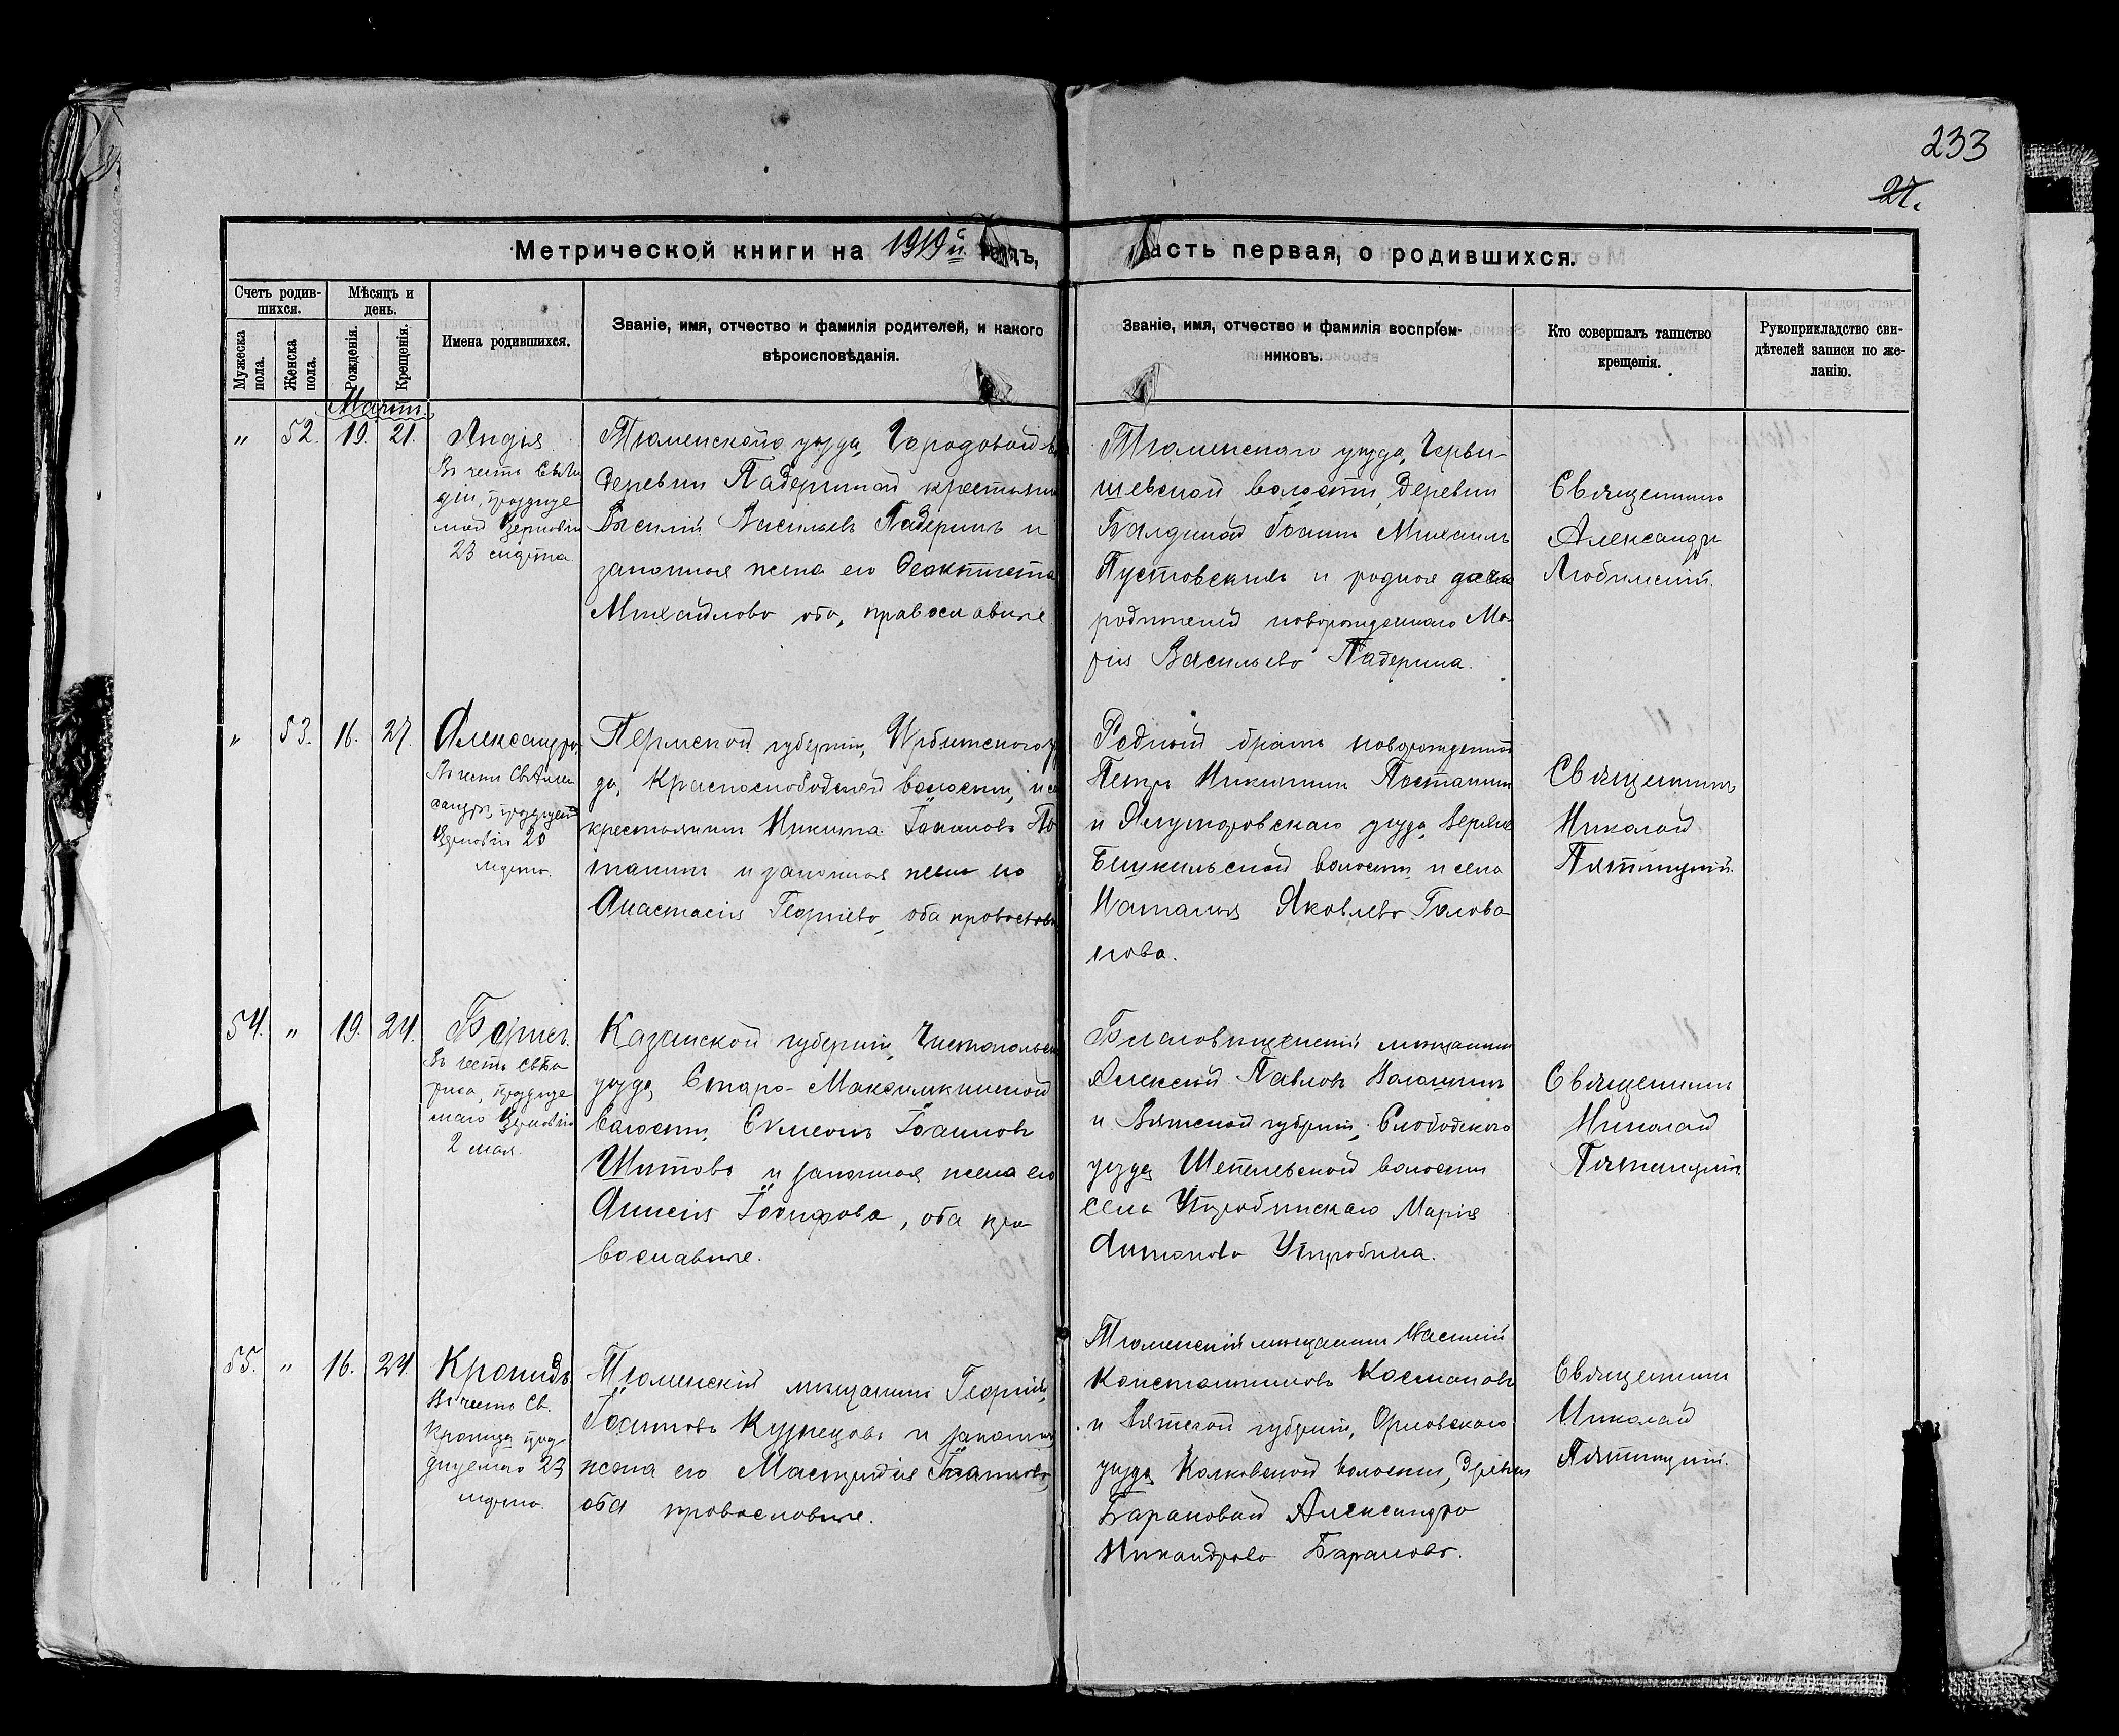 233
27.
Метрической книги на 1919й годъ, часть первая, о родившихся.
Счетъ родив-
шихся.
Мужеска
пола.
Женска
пола.
Мѣсяцъ и
день.
Рожденія.
Крещенія.
Имена родившихся.
Званіе, имя, отчество и фамилія родителей, и какого
вѣроисповѣданія.
Званіе, имя, отчество и фамилія воспріем-
никовъ.
Кто совершалъ таинство
крещенія.
Рукоприкладство сви-
дѣтелей записи по же-
ланію.
Мартъ.
" 52. 19. 21.
Лидія
Въ честь Св. Ли
діи, праздуе
мой Церковію
23 марта
Тюменскаго уѣзда, Городовой
деревни Падериной крестьянинъ
Василій Васильевъ Падеринъ и
законная жена его Феоктиста
Михайлова оба, православные.
Тюменскаго уѣзда, Черви-
шевской волости, деревни
Балдиной Іоаннъ Михаилъ
Пустовскихъ и родная дочь
родителей новорожденнаго Ма-
рія Васильева Падерина.
Священникъ
Александръ
Любимскій.
" 53. 16. 27.
Александра
Въ честь Св. Алек
сандры, празднуемой
Церковію 20
марта.
Пермской губерніи, Ирбитскаго уѣз
да, Краснослободской волости, и села
крестьянинъ Никита Іоанновъ По
танинъ и законная жена его
Анастасія Георгіева, оба православ
Родной братъ новорожденной
Петръ Никитинъ Потанинъ
и Ялуторовскаго уѣзда, Верхне
Бешкильской волости и села
Наталья Яковлева Голова
нова.
Священникъ
Николай
Пятницкій.
54. " 19. 24.
Борисъ.
Въ честь Св. Бо
риса, праздуе
маго Церковію
2 мая.
Казанской губерніи, Чистопольск
уѣзда, Старо-Максимкинской
волости, Симеонъ Іоанновъ
Шитовъ и законная жена его
Анисія Іосифова, оба пра
вославные.
Благовѣщенскій мѣщанинъ
Алексѣй Павловъ
и Вятской губерніи, Слободскаго
уѣзда Шепелевской волости
села Утробинскаго Марія
Антонова Утробина.
Священникъ
Николай
Пятницкій
55. " 16. 24.
Кронидъ.
Въ честь Св.
Кронида праз
днуемаго 23
марта.
Тюменскій мѣщанинъ Георгій
Іоанновъ Кузнецовъ и законная
жена его Мастридія Іоаннова,
оба православные.
Тюменскій мѣщанинъ Василій
Константиновъ Космаковъ
и Вятской губерніи, Орловскаго
уѣзда Колковской волости, деревни
Барановой Александра
Никандрова Баранова.
Священникъ
Николай
Пятницкій.